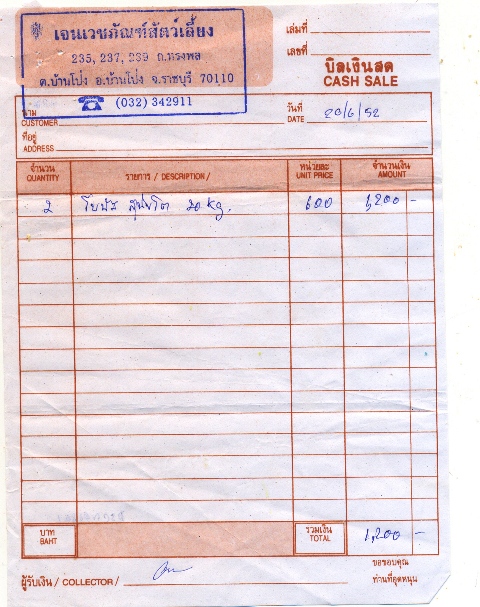 เจนเวชภัณฑ์สัตว์เลี้ยง
235, 237, 239 ถ.ทรงพล
ต.บ้านโป่ง อ.บ้านโป่ง จ.ราชบุรี 70110
☎ (032) 342911
เล่มที่
เลขที่
บิลเงินสด
CASH SALE
นาม
CUSTOMER
วันที่
DATE 20/6/52
ที่อยู่
ADDRESS
จำนวน QUANTITY รายการ / DESCRIPTION / หน่วยละ UNIT PRICE จำนวนเงิน AMOUNT
2 โบนัส 20 kg. 600 1,200 -
บาท BAHT รวมเงิน TOTAL 1,200 -
ผู้รับเงิน / COLLECTOR /
ขอขอบคุณ
ท่านที่อุดหนุน